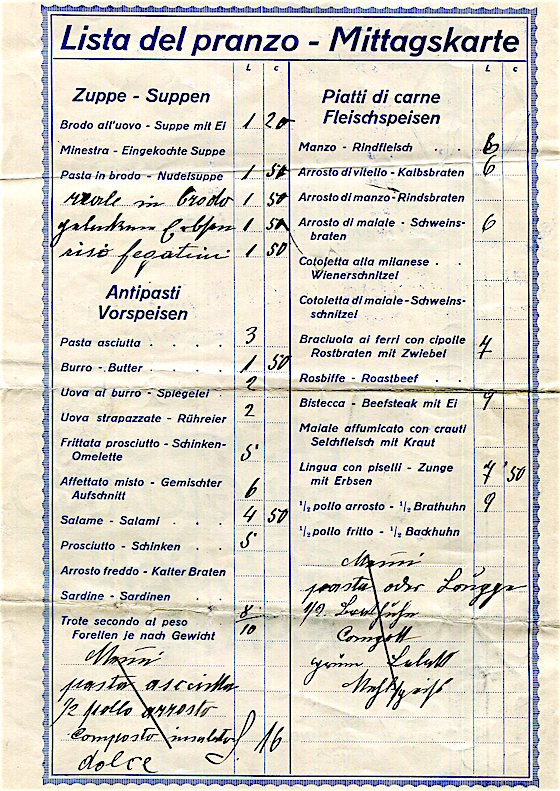 Lista del pranzo - Mittagskarte
L C
Zuppe - Suppen
Brodo all'uovo - Suppe mit Ei 1 20
Minestra - Eingekochte Suppe
Pasta in brodo - Nudelsuppe 1 50
reale in brodo 1 50
Erbsen 1 50
riso fegatini 1 50
Antipasti
Vorspeisen
Pasta asciutta . . . . . 3
Burro - Butter . . . . 1 50
Uova al burro - Spiegelei . 2
Uova strapazzate - Rühreier 2
Frittata prosciutto - Schinken-
Omelette 5
Affettato misto - Gemischter
Aufschnitt 6
Salame - Salami . . . . 4 50
Prosciutto - Schinken . . . 5
Arrosto freddo - Kalter Braten
Sardine - Sardinen . . . .
Trote secondo al peso 8
Forellen je nach Gewicht 10
Menü
pasta asciutta
1/2 pollo arrosto
Composto insalata 16
dolce
L C
Piatti di carne
Fleischspeisen
Manzo - Rindfleisch . .
Arrosto di vitello - Kalbsbraten 6
Arrosto di manzo - Rindsbraten
Arrosto di maiale - Schweins- 6
braten
Cotoletta alla milanese . .
Wienerschnitzel
Cotoletta di maiale - Schweins-
schnitzel
Braciuola ai ferri con cipolle 7
Rostbraten mit Zwiebel
Rosbiffe - Roastbeef . .
Bistecca - Beefsteak mit Ei 9
Maiale affumicato con crauti
Selchfleisch mit Kraut
Lingua con piselli - Zunge 7 50
mit Erbsen
½ pollo arrosto - ½ Brathuhn 9
½ pollo fritto - ½ Backhuhn
Menü
pasta oder
1/2
Compott
grün Salatt
Mehlspeis